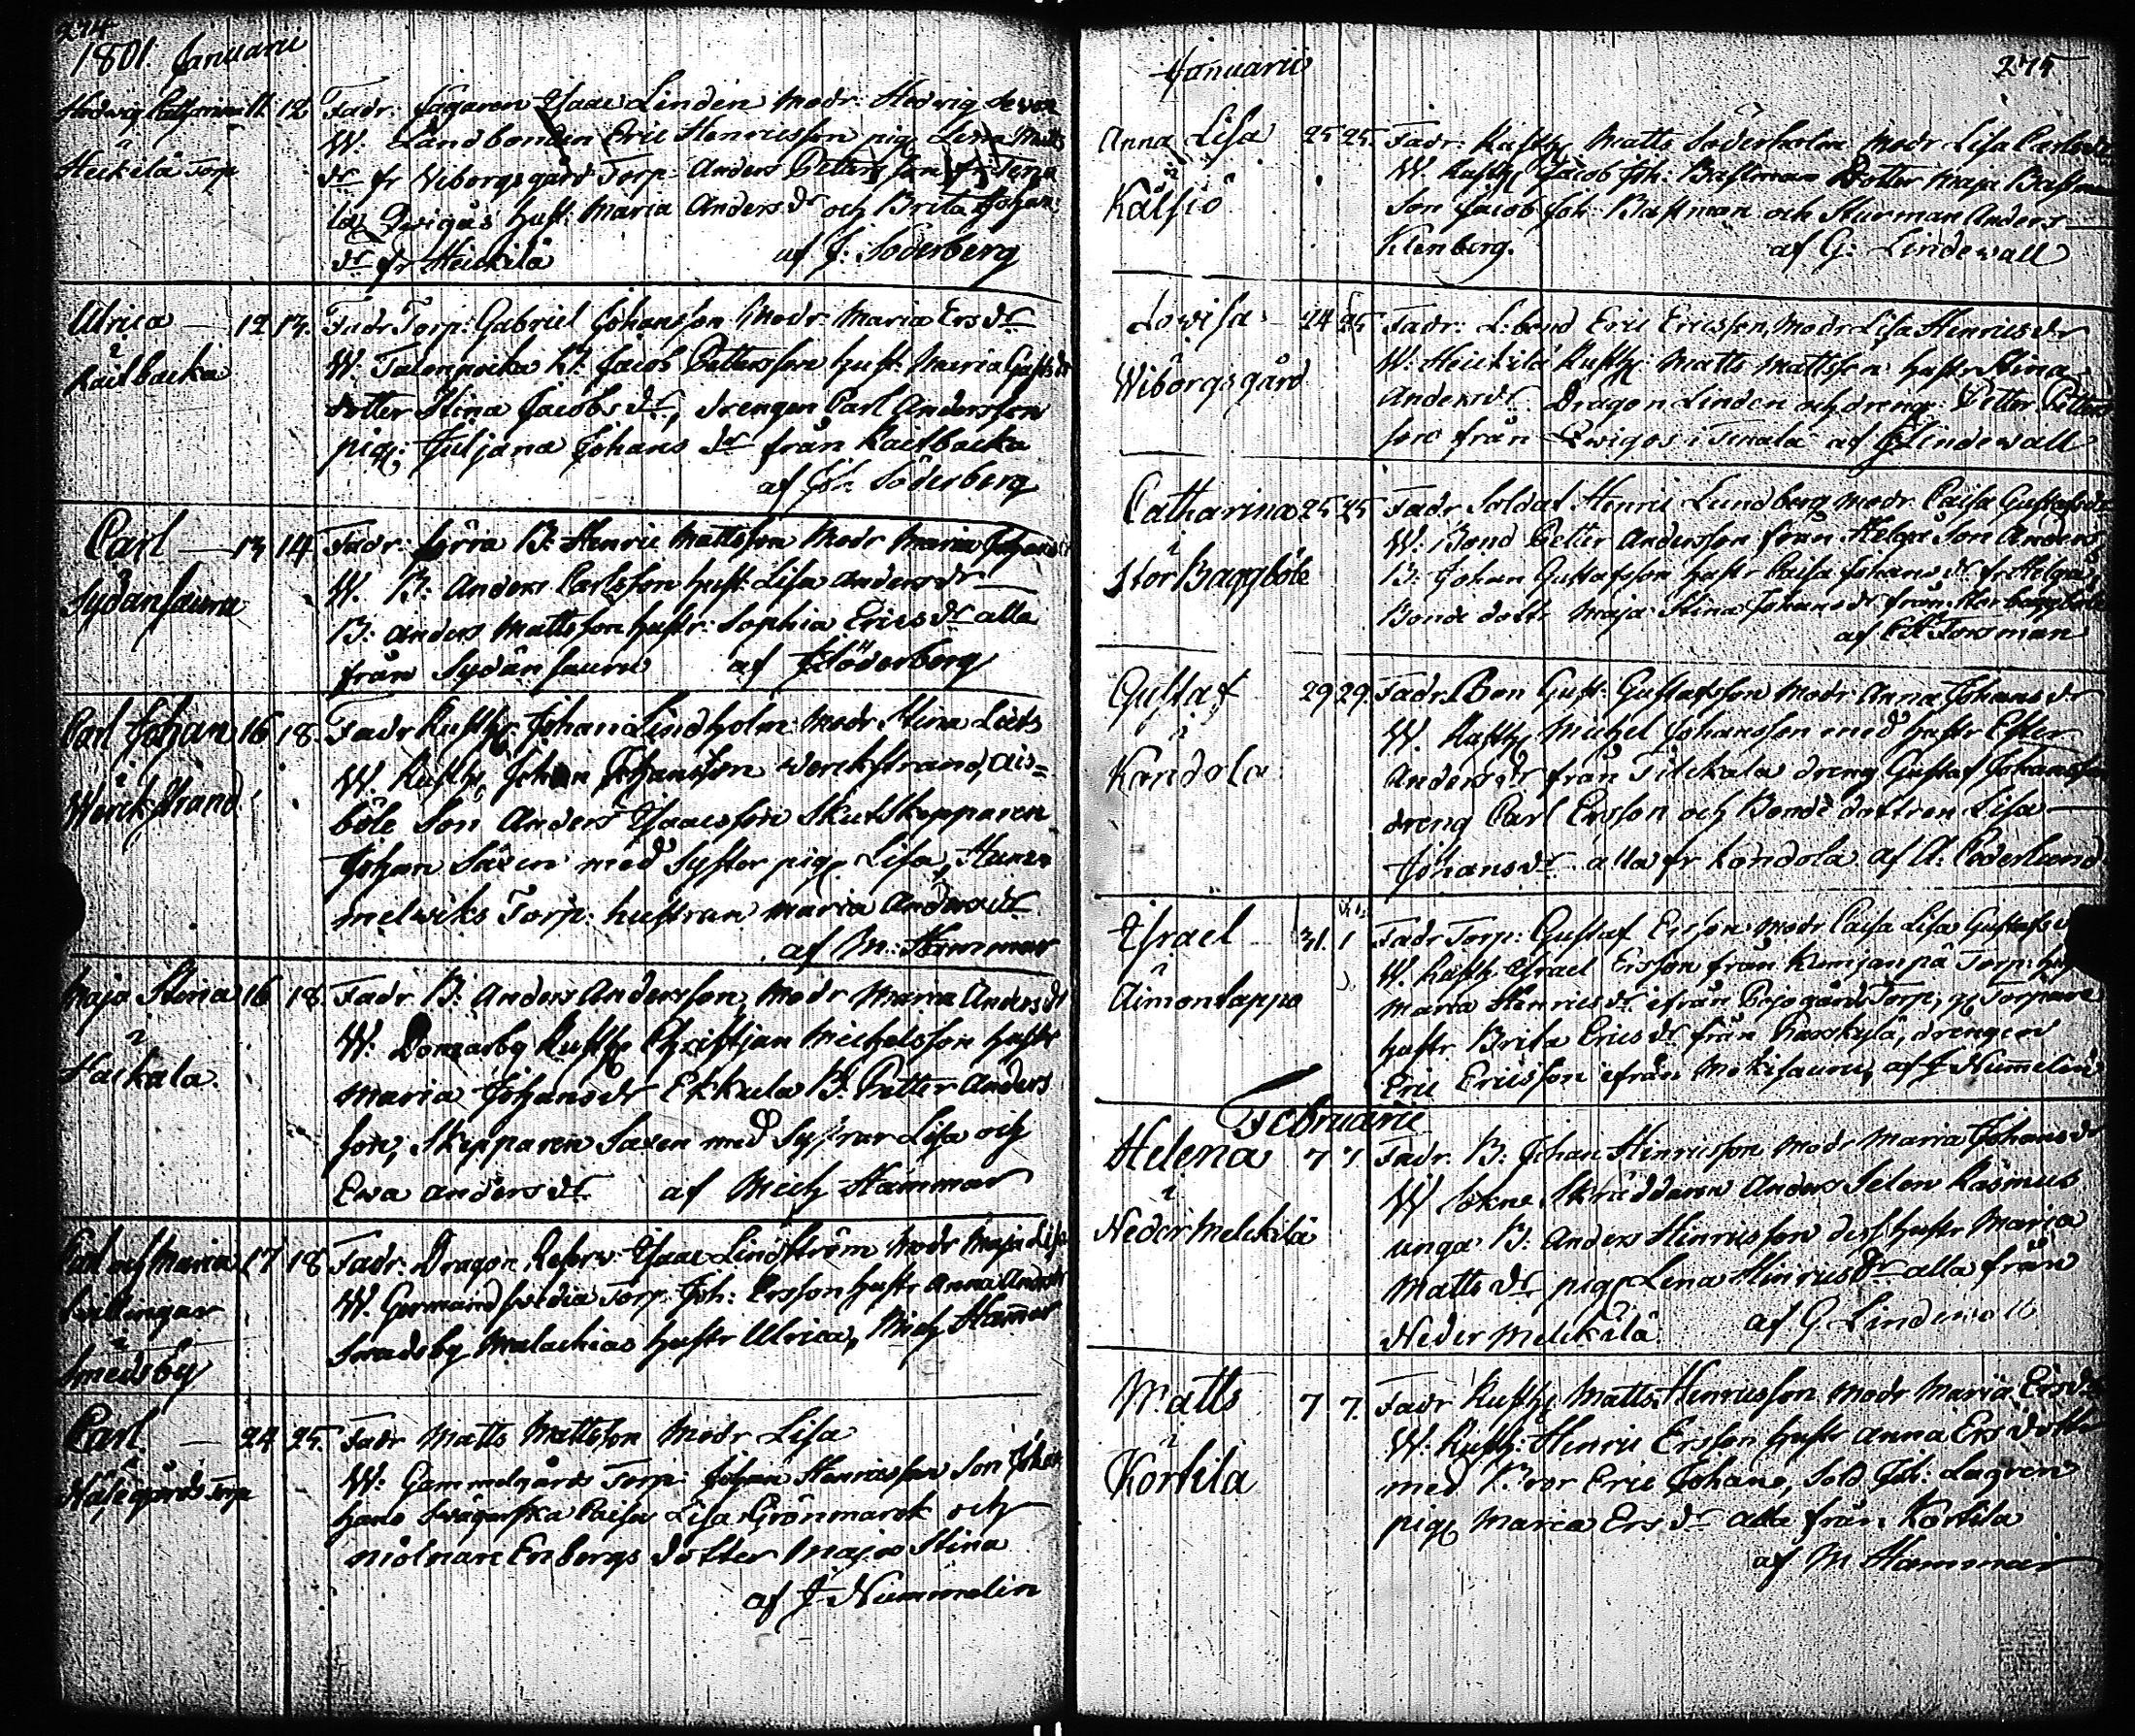 274
1801 Januarii
Hedwig Catharina 11 12 Fadr: Jägaren Isaac Linden Modr: Hedwig
i W: Landbonden Eric Henricsson pig Lena Matts
Heikilä Torp dr fr Wiborgsgård Torp: Anders Pettersson fr Tena
la Qwigas hust: Maria Anders dr och Brita Johans
dr fr Heickilä af J: Söderberg
Ulrica 12 13. Fadr Torp: Gabriel Johansson Modr: Maria Ers dr
i W: Talonpoika Lt: Jacob Pettersson hust: Maria Gusts dr
Raitbacka dotter Stina Jacobs dr, drengen Carl Andersson
pig: Juljana Johans dr från Raitbacka
af Joh. Söderberg
Carl 13 14 Fadr: förra B: Henric Mattsson Modr Maria Johans dr
i W. B: Anders Carlsson hust: Lisa Anders dr
Sydänsaura B: Anders Mattsson hustr: Sophia Erics dr alla
från Sydänsauru af J Söderberg
Carl Johan 16 18. Fadr Rusth: Johan Lindholm Modr Stina
i W. Rusth: Johan Johansson Werckstrand,
Werckstrand böle Son Anders Isaacsson Skutskepparen
Johan Saxen med Syster pig: Lisa,
melwiks Torp: hustran Maria Anders dr
af M: Hammar
Maja Stina 16 18 Fadr. B: Anders Andersson, Modr Maria Anders dr
i W: Domarby Rusth: Christjan Michelsson hustr
Haikala. Maria Johans dr Ekkula B: Petter Anders
son, Skepparen Saxen med Systrar Lisa och
Ewa Anders dr af Mich Hammar
Carl och Maria 17 18 Fadr: Dragon Reserv: Isaac Lindström Modr Maja Lisa
twillingar W. Germundsvedia Torp: Joh: Ersson hustr Anna Anders dr
i Smedsby Malachias hustr Ulrica, Mich Hammar
Smedsby
Carl 24 25. Fadr Matts Mattsson Modr Lisa
i W: Gammelgårds Torp: Johan Henricsson Son Johan
gårds Torp hans Swägerska Caisa Lisa Grönmarck och
mölnare Enbergs dotter Maja Stina
af J Nummelin
Januarii 275
Anna Lisa 25 25. Fadr: Rusth: Matts Söderholm Modr Lisa Carls dr
i W. Rusth: Jacob Joh: Bastman Dotter Maja Bastman
Kålsiö Son Jacob Joh: Bastman och Sturman Anders
Klenberg. af G: Lindewall
Lovisa 24 25 Fadr: L:bond Eric Ericsson, Modr Lisa Henrics dr
i W: Heickilä Rusth: Matts Mattsson hustr Stina
Wiborgsgård Anders dr Dragon Linden och dreng: Petter Petters
son från Qwigos i Tenala af G Lindewall
Catharina 25 25 Fadr Soldat Henric Lundberg Modr Caisa Gustafs dr
i W: Bond Petter Andersson från Helgå Son Anders
StorBaggböle B: Johan Gustafsson hustr Caisa Johans dr fr Helgå,
Bonde dottr Maja Stina Johans dr från Storbaggböle
af Forsman
Gustaf 29 29. Fadr. Bon Gust: Gustafsson Modr: Anna Johans dr
i W. Rusth: Michel Johansson med hustr Ester
Kåndola Anders dr från Tilckala dreng Gustaf Johansson
dreng Carl Ersson och Bonde dottren Lisa
Johans dr alla fr Kondola af A: Cederlund
Israel 31. 1 Fadr Torp: Gustaf Ersson Modr Caisa Lisa Gustafs dr
i W. Rusth: Israel Ersson från Kumjanpä Torp: hustr
Aimontappo Maria Henrics dr ifrån Pojogårds Torp, Torpare
hustr Brita Erics dr från Kosskylä, drengen
Eric Ericsson ifrån Mokisauru, af J Nummelin
Februarii
Helena 7 7. Fadr. B: Johan Hinricsson Modr Maria Johans dr
i W Sokne Skräddaren Anders Selen Rasmus
Neder Melckilä unga B: Anders Hinricsson dess hustr Maria
Matts dr pig: Lena Hinrics dr alla från
Neder Melckilä af G Lindewall
Matts 7 7. Fadr Rusth: Matts Henricsson Modr Maria Ers dr
i W: Rusth: Henric Ersson hustr Anna Ers dotter
Kortila med Bror Eric Johans, Sold Joh: Lagren
pig: Maria Ers dr alla från Kortila
af M Hammar